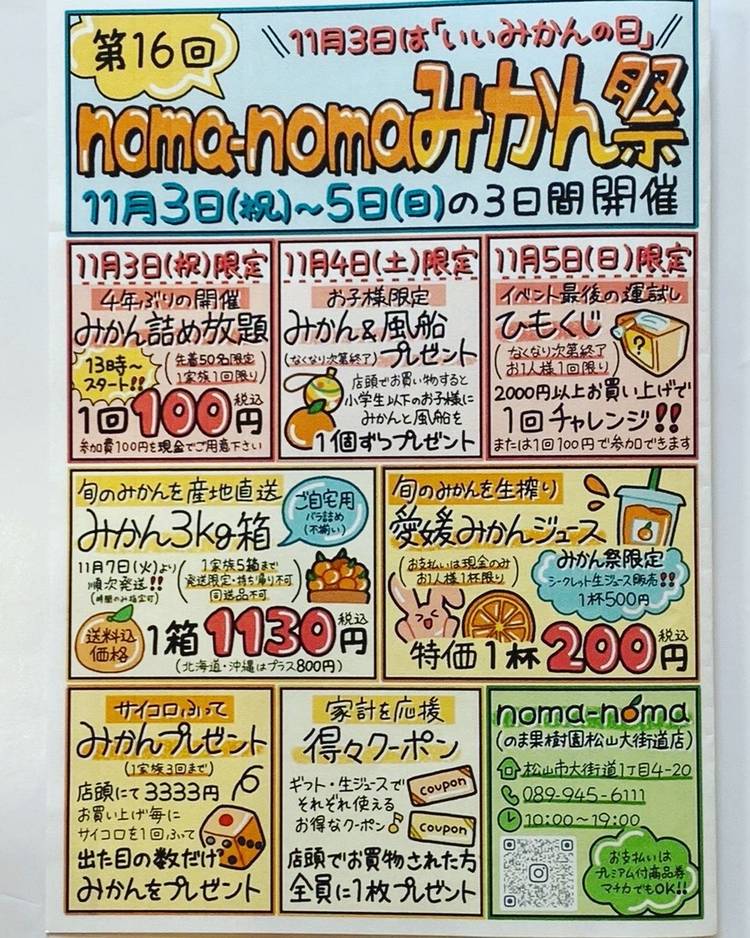 第16回
11月3日は「いいみかんの日」
noma-nomaみかん祭
11月3日(祝)～5日(日)の3日間開催
11月3日(祝)限定
4年ぶりの開催
みかん詰め放題
13時～
スタート!!
(先着50名限定
1家族1回限り)
1回100円税込
参加費100円を現金でご用意下さい
11月4日(土)限定
お子様限定
みかん&風船
(なくなり次第終了)プレゼント
店頭でお買い物すると
小学生以下のお子様に
みかんと風船を
1個ずつプレゼント
11月5日(日)限定
イベント最後の運試し
ひもくじ
(なくなり次第終了
お1人様1回限り)
?
2000円以上お買い上げで
1回チャレンジ!!
または1回100円で参加できます
旬のみかんを産地直送
みかん3kg箱
ご自宅用
バラ詰め
(不揃い)
11月7日(火)より
順次発送!!
(時間のみ指定可)
(1家族5箱まで
発送限定・持ち帰り不可
同送品不可)
送料込
価格
1箱1130円税込
(北海道・沖縄はプラス800円)
旬のみかんを生搾り
愛媛みかんジュース
(お支払いは現金のみ
お1人様1杯限り)
みかん祭限定
シークレット生ジュース販売!!
1杯500円
特価1杯200円税込
サイコロふって
みかんプレゼント
(1家族3回まで)
店頭にて3333円
お買い上げ毎に
サイコロを1回ふって
出た目の数だけ
みかんをプレゼント
家計を応援
得々クーポン
ギフト・生ジュースで
それぞれ使える
お得なクーポン♪
coupon
coupon
店頭でお買物された方
全員に1枚プレゼント
noma-noma
(のま果樹園松山大街道店)
松山市大街道1丁目4-20
089-945-6111
10:00～19:00
お支払いは
プレミアム付商品券
マチカでもOK!!